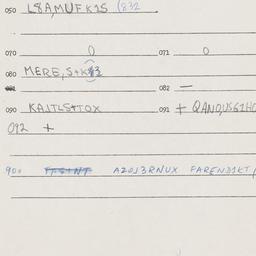 050 L8A,MUFK1S (832
070 0 071 0
080 MERE,S+K
082 —
090 KAJTLS+TOX 091 + QANO,US61HC
092 +
900 A20J3RNUX FAREND1KT,